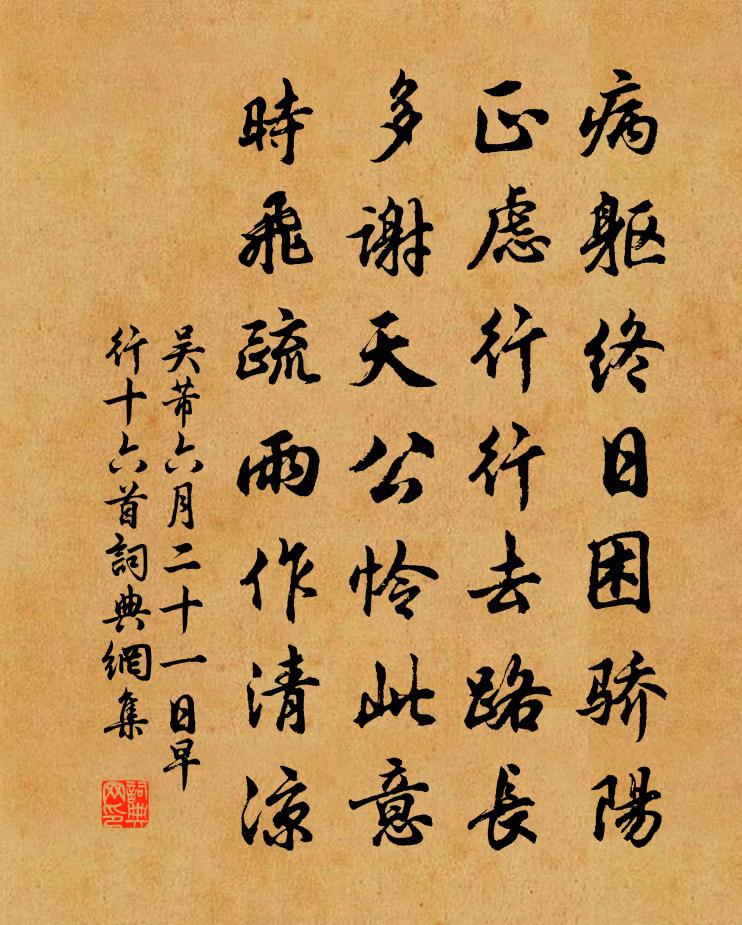 病躯终日困骄陽
正慮行行去路長
多謝天公怜此意
時飛疏雨作清涼
吴芾六月二十一日早
行十六首詞典網集
詞典网印